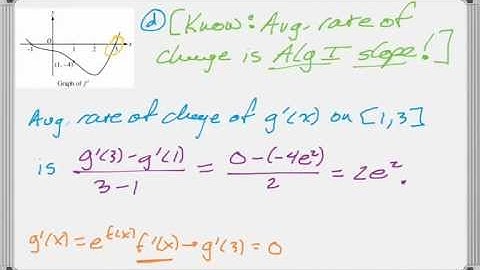 -1 O 1 2 3 x
(1, -4)
Graph of f'
(d) [Know: Avg. rate of
change is Alg I slope!]
Avg. rate of change of g'(x) on [1,3]
is g'(3)-g'(1) / 3-1 = 0-(-4e²) / 2 = 2e².
g'(x) = e^f(x) f'(x) → g'(3) = 0